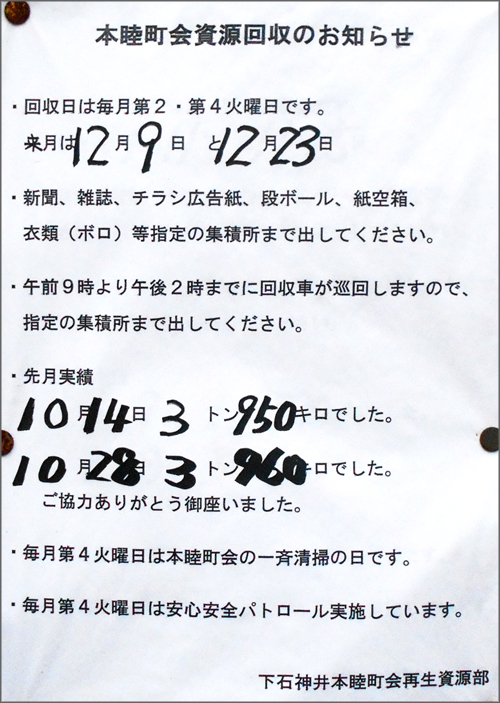 本睦町会資源回収のお知らせ
・回収日は毎月第２・第４火曜日です。
来月は12月9日 と12月23日
・新聞、雑誌、チラシ広告紙、段ボール、紙空箱、
衣類（ボロ）等指定の集積所まで出してください。
・午前９時より午後２時までに回収車が巡回しますので、
指定の集積所まで出してください。
・先月実績
10月14日 3 トン950キロでした。
10月28日 3 トン960キロでした。
ご協力ありがとう御座いました。
・毎月第４火曜日は本睦町会の一斉清掃の日です。
・毎月第４火曜日は安心安全パトロール実施しています。
下石神井本睦町会再生資源部